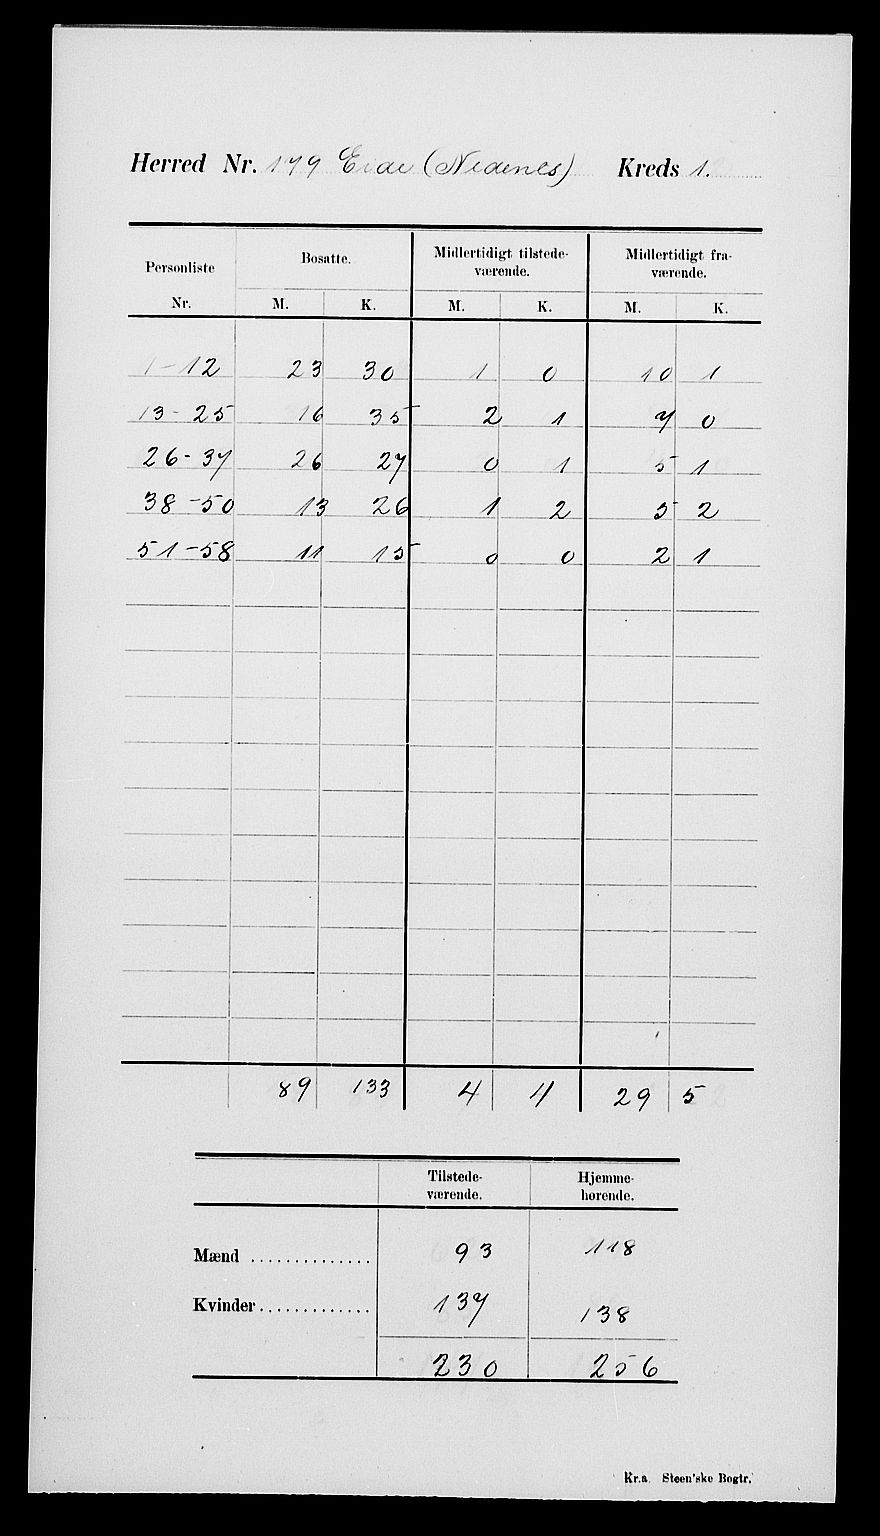 Herred Nr. 179 Eide (Nedenes) Kreds 1.
Personliste Nr. Bosatte. Midlertidigt tilstede- værende. Midlertidigt fra- værende.
M. K. M. K. M. K.
1-12 23 30 1 0 10 1
13-25 16 35 2 1 7 0
26-37 26 27 0 1 5 1
38-50 13 26 1 2 5 2
51-58 11 15 0 0 2 1
89 133 4 4 29 5
Tilstede- værende. Hjemme- hørende.
Mænd .............. 93 118
Kvinder............. 137 138
230 256
Kr.a Steen'ske Bogtr.